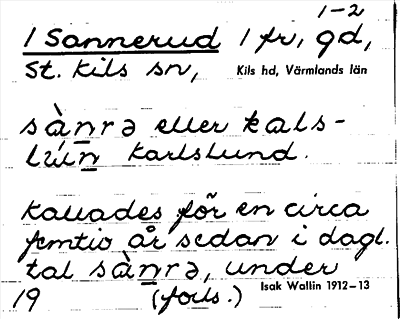 1-2
1 Sannerud 1 fr, gd,
St. Kils sn, Kils hd, Värmlands län
sànrə eller kals-
lùn Karlslund.
Kallades för en circa
femtio år sedan i dagl.
tal sànrə, under
19 (forts.) Isak Wallin 1912-13